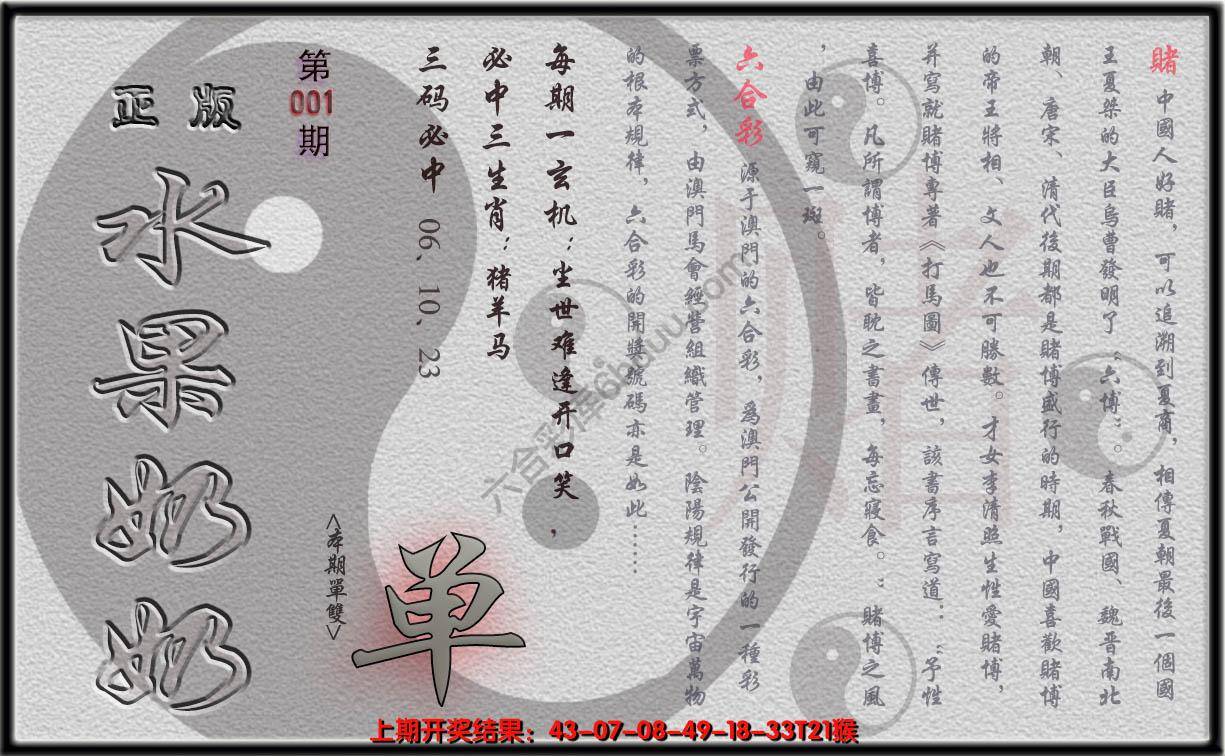 賭 中國人好賭，可以追溯到夏商，相傳夏朝最後一個國
王夏桀的大臣烏曹發明了“六博”。春秋戰國、魏晋南北
朝、唐宋、清代後期都是賭博盛行的時期，中國喜歡賭博
的帝王將相、文人也不可勝數。才女李清照生性愛賭博，
并寫就賭博專著《打馬圖》傳世，該書序言寫道：“予性
喜博。凡所謂博者，皆耽之書畫，每忘寢食。”賭博之風
，由此可窺一斑。
六合彩 源于澳門的六合彩，為澳門公開發行的一種彩
票方式，由澳門馬會經營組織管理。陰陽規律是宇宙萬物
的根本規律，六合彩的開獎號碼亦是如此……
每期一玄机：尘世难逢开口笑，
必中三生肖：猪羊马
三码必中 06、10、23
第001期
正版
水果奶奶
<本期單雙>
单
赌
六合彩库6huuu.com
上期开奖结果：43-07-08-49-18-33T21猴